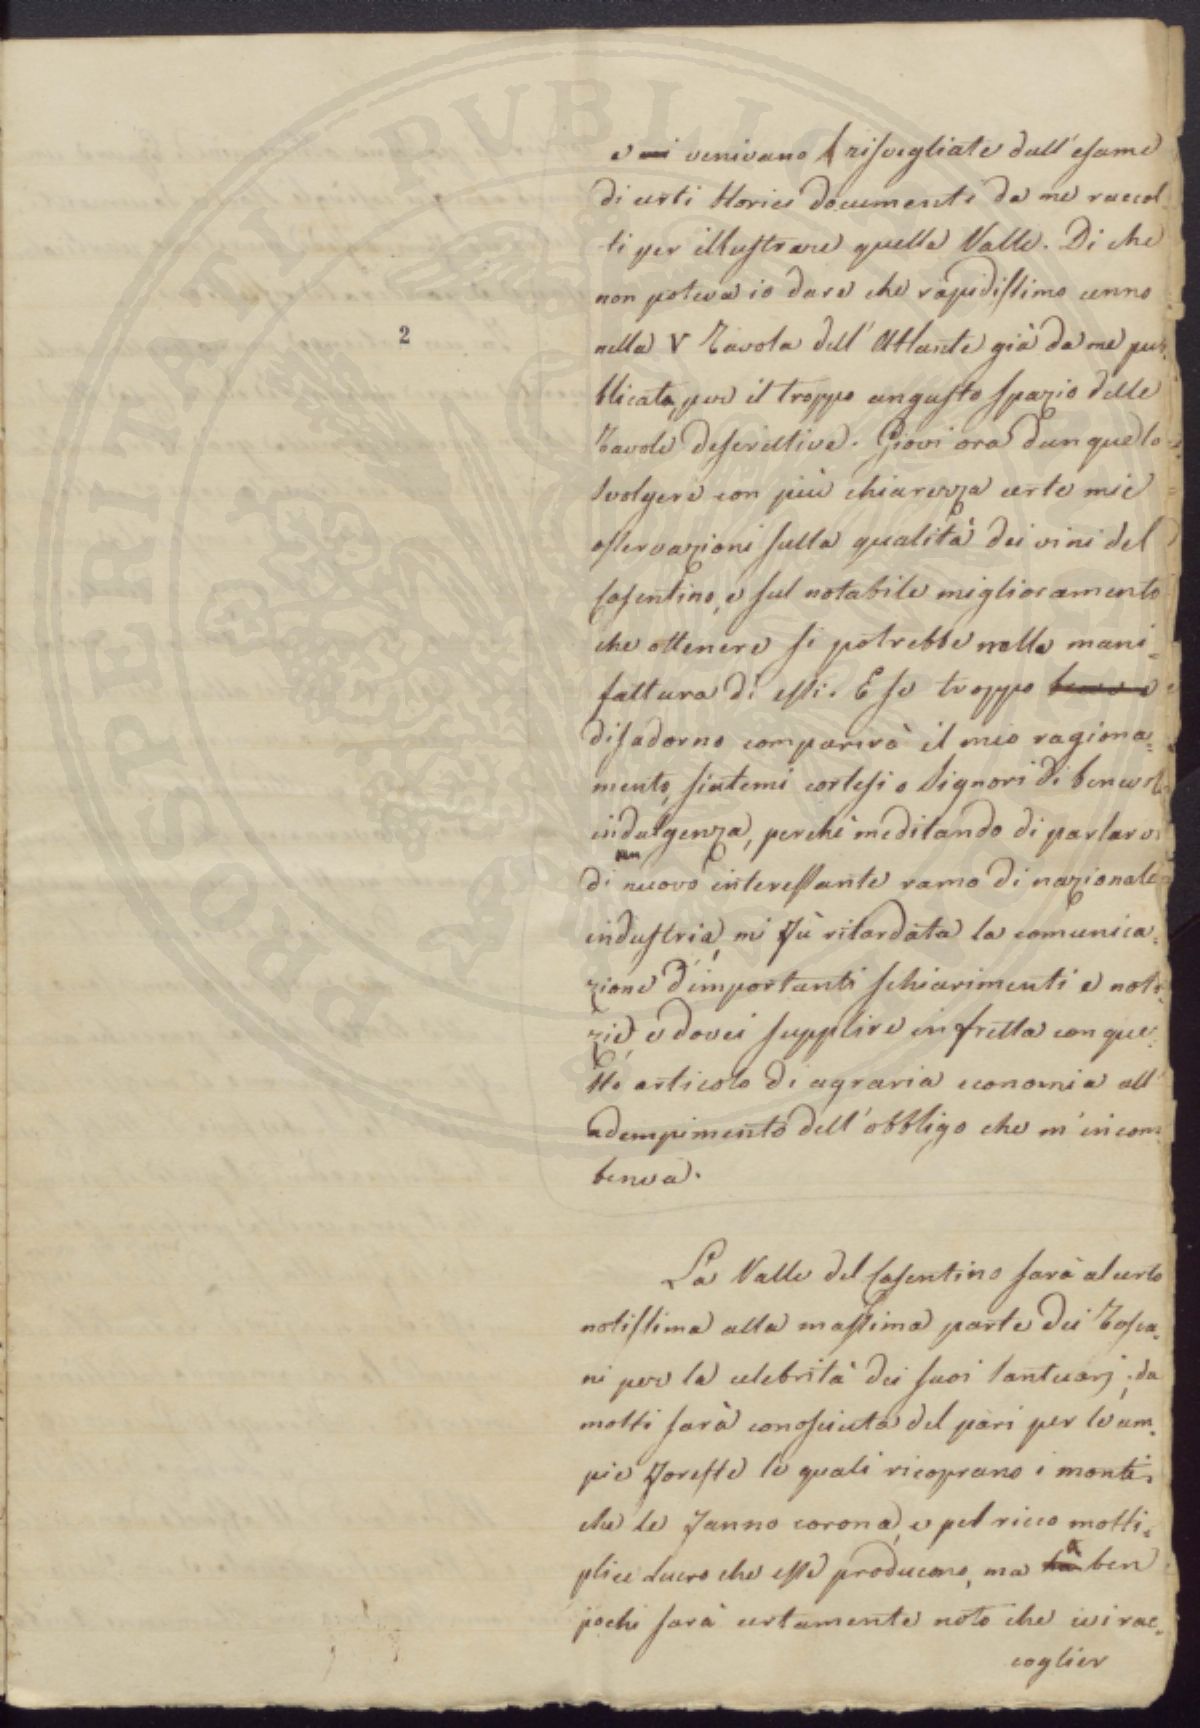 e mi venivano risvegliate dall'esame
di certi storici documenti da me raccol-
ti per illustrare quella Valle. Di che
non poteva io dare che rapidissimo cenno
2
nella V Tavola dell'Atlante già da me pub-
blicato, per il troppo angusto spazio delle
Tavole descrittive. Giovi ora dunque lo
svolgere con più chiarezza certe mie
osservazioni sulla qualità dei vini del
Casentino, e sul notabile miglioramento
che ottenere si potrebbe nella mani=
fattura di essi. E se troppo
disadorno comparirà il mio ragiona=
mento, siatemi cortesi o Signori di benevola
indulgenza, perchè meditando di parlarvi
un
di nuovo interessante ramo di nazionale
industria, mi fù ritardata la comunica=
zione d'importanti schiarimenti e noti=
zie, e dovei supplire in fretta con que=
sto articolo di agraria economia all'
adempimento dell'obbligo che m'incom=
beva.
La Valle del Casentino sarà al certo
notissima alla massima parte dei Tosca=
ni per la celebrità dei suoi Santuarj; da
molti sarà conosciuta del pari per le am=
pie foreste le quali ricoprano i monti
che le fanno corona, e pel ricco molti=
plice lucro che esse producono, ma a ben
pochi sarà certamente noto che ivi rac=
coglier
PROSPERITATI PUBLICAE